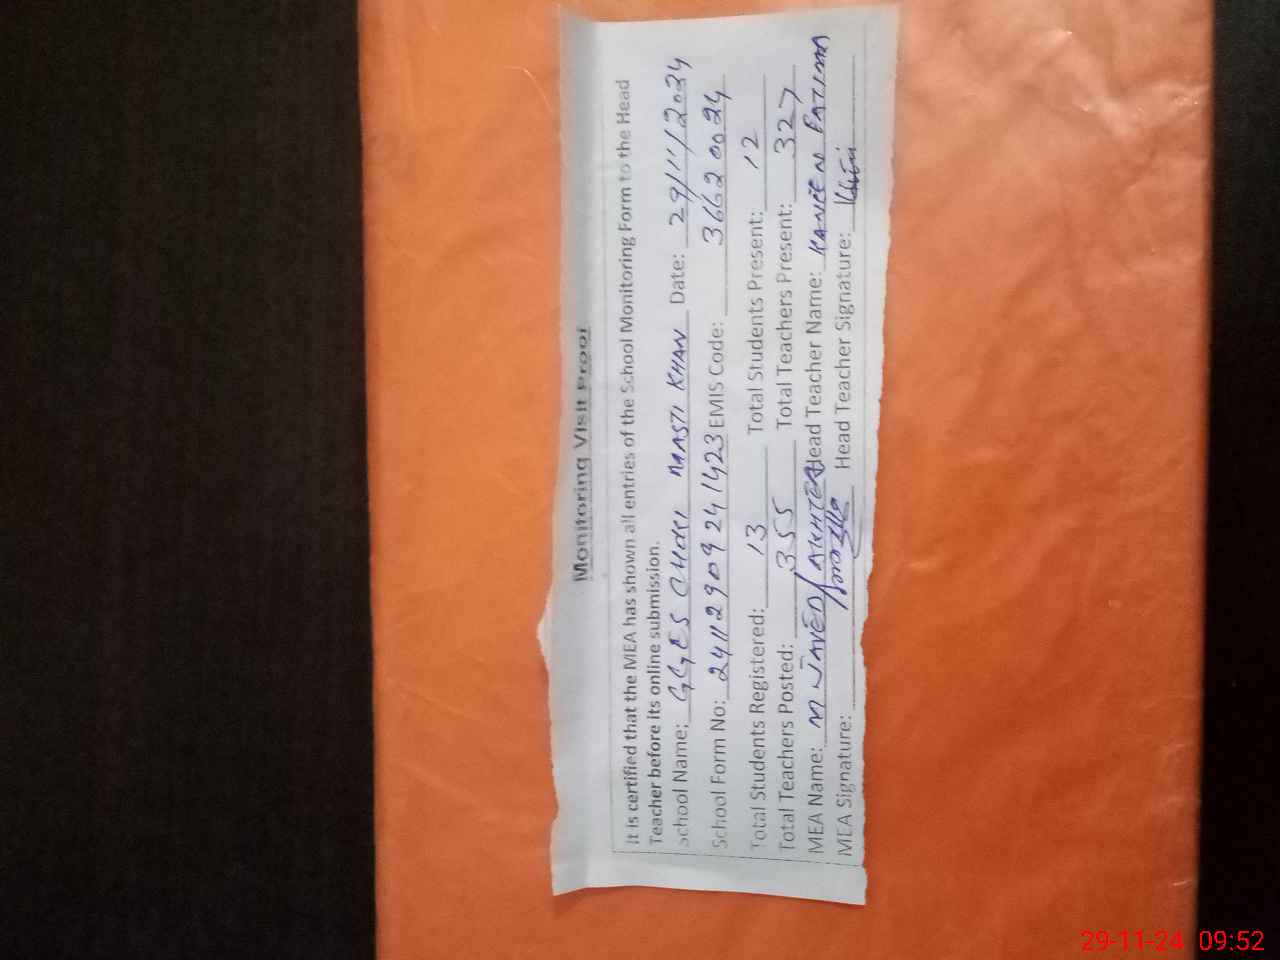 Monitoring Visit Proof
It is certified that the MEA has shown all entries of the School Monitoring Form to the Head
Teacher before its online submission.
School Name: GGES CHOKI MASTI KHAN Date: 29/11/2024
School Form No: 24112909241423 EMIS Code: 36620024
Total Students Registered: 13 Total Students Present: 12
Total Teachers Posted: 355 Total Teachers Present: 327
MEA Name: M JAVED AKHTER Head Teacher Name: KANEEN FATIMA
MEA Signature: Head Teacher Signature:
29-11-24 09:52